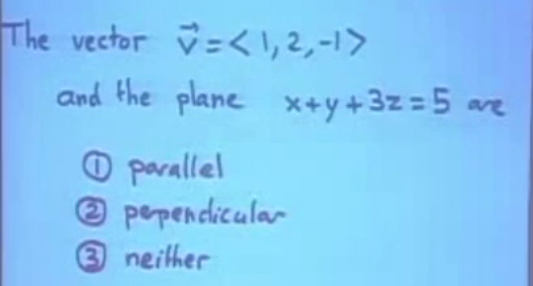 The vector v⃗ = < 1, 2, -1 >
and the plane x+y+3z=5 are
① parallel
② perpendicular
③ neither